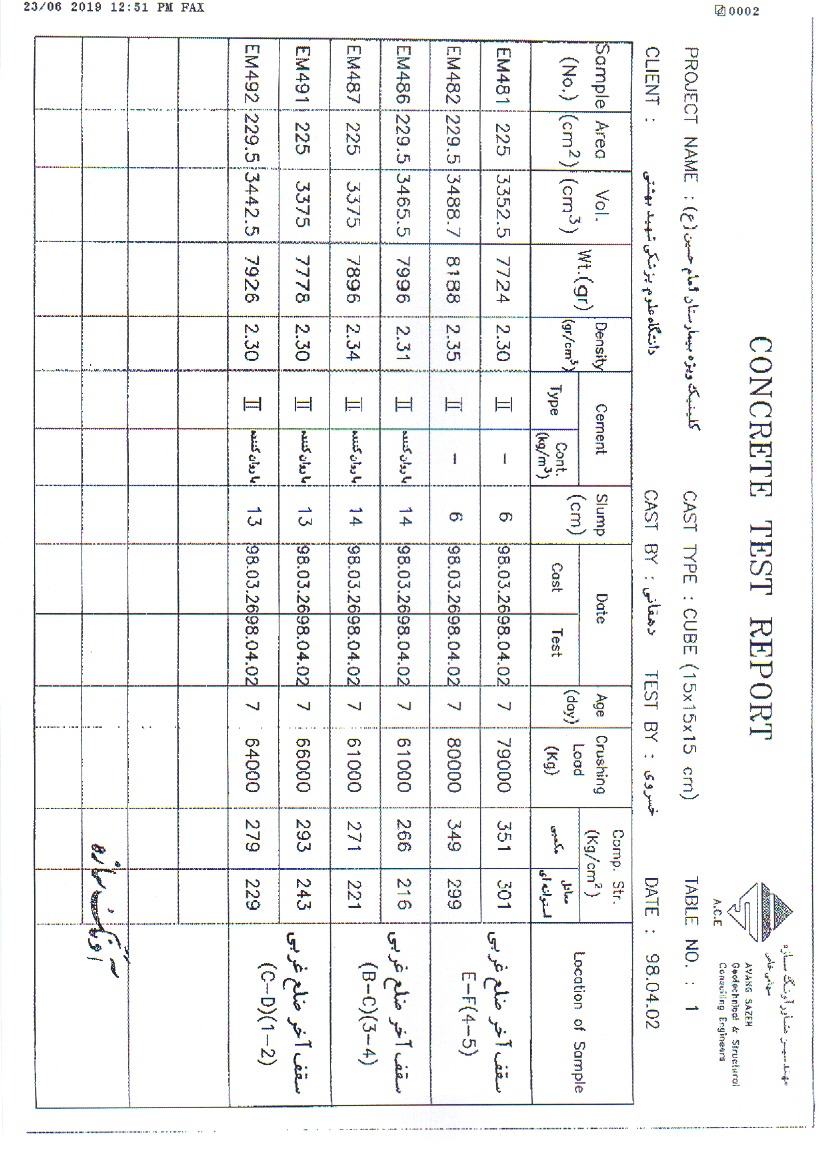 23/06 2019 12:51 PM FAX 0002
CONCRETE TEST REPORT
مهندسین مشاور آونگ سازه
سهامی خاص
AVANG SAZEH
Geotechnical & Structural
Consulting Engineers
A.C.E
PROJECT NAME : کلینیک ویژه بیمارستان امام حسین (ع) CAST TYPE : CUBE (15x15x15 cm) TABLE NO. : 1
CLIENT : دانشگاه علوم پزشکی شهید بهشتی CAST BY : دهقانی TEST BY : خسروی DATE : 98.04.02
Sample (No.) Area (cm2) Vol. (cm3) Wt.(gr) Density (gr/cm3) Cement Type Cont. (kg/m3) Slump (cm) Date Cast Test Age (day) Crushing Load (Kg) Comp. Str. (Kg/cm2) مکعبی معادل استوانه ای Location of Sample
EM481 225 3352.5 7724 2.30 II - 6 98.03.26 98.04.02 7 79000 351 301 سقف آخر ضلع غربی
EM482 229.5 3488.7 8188 2.35 II - 6 98.03.26 98.04.02 7 80000 349 299 E-F(4-5)
EM486 229.5 3465.5 7996 2.31 II با روان کننده 14 98.03.26 98.04.02 7 61000 266 216 سقف آخر ضلع غربی
EM487 225 3375 7896 2.34 II با روان کننده 14 98.03.26 98.04.02 7 61000 271 221 (B-C)(3-4)
EM491 225 3375 7778 2.30 II با روان کننده 13 98.03.26 98.04.02 7 66000 293 243 سقف آخر ضلع غربی
EM492 229.5 3442.5 7926 2.30 II با روان کننده 13 98.03.26 98.04.02 7 64000 279 229 (C-D)(1-2)
آونگ سازه